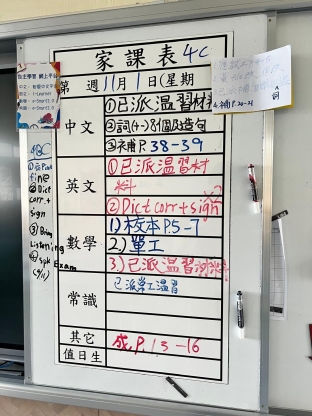 家課表 4C
第 週 11月 1日(星期
中文
①已派溫習材料
②詞(十)8個及造句
③補P.38-39
英文
①已派溫習材
料
②Dict corr + sign
數學
1) 校本P.5-7
2) 單工
3) 已派溫習
常識
已派單工溫習
其它
成P.13-16
值日生
自主學習 網上平台
4BC
Dict
corr. +
sign
③ Bring
Listening
④
Exam
補P.20-21
詞